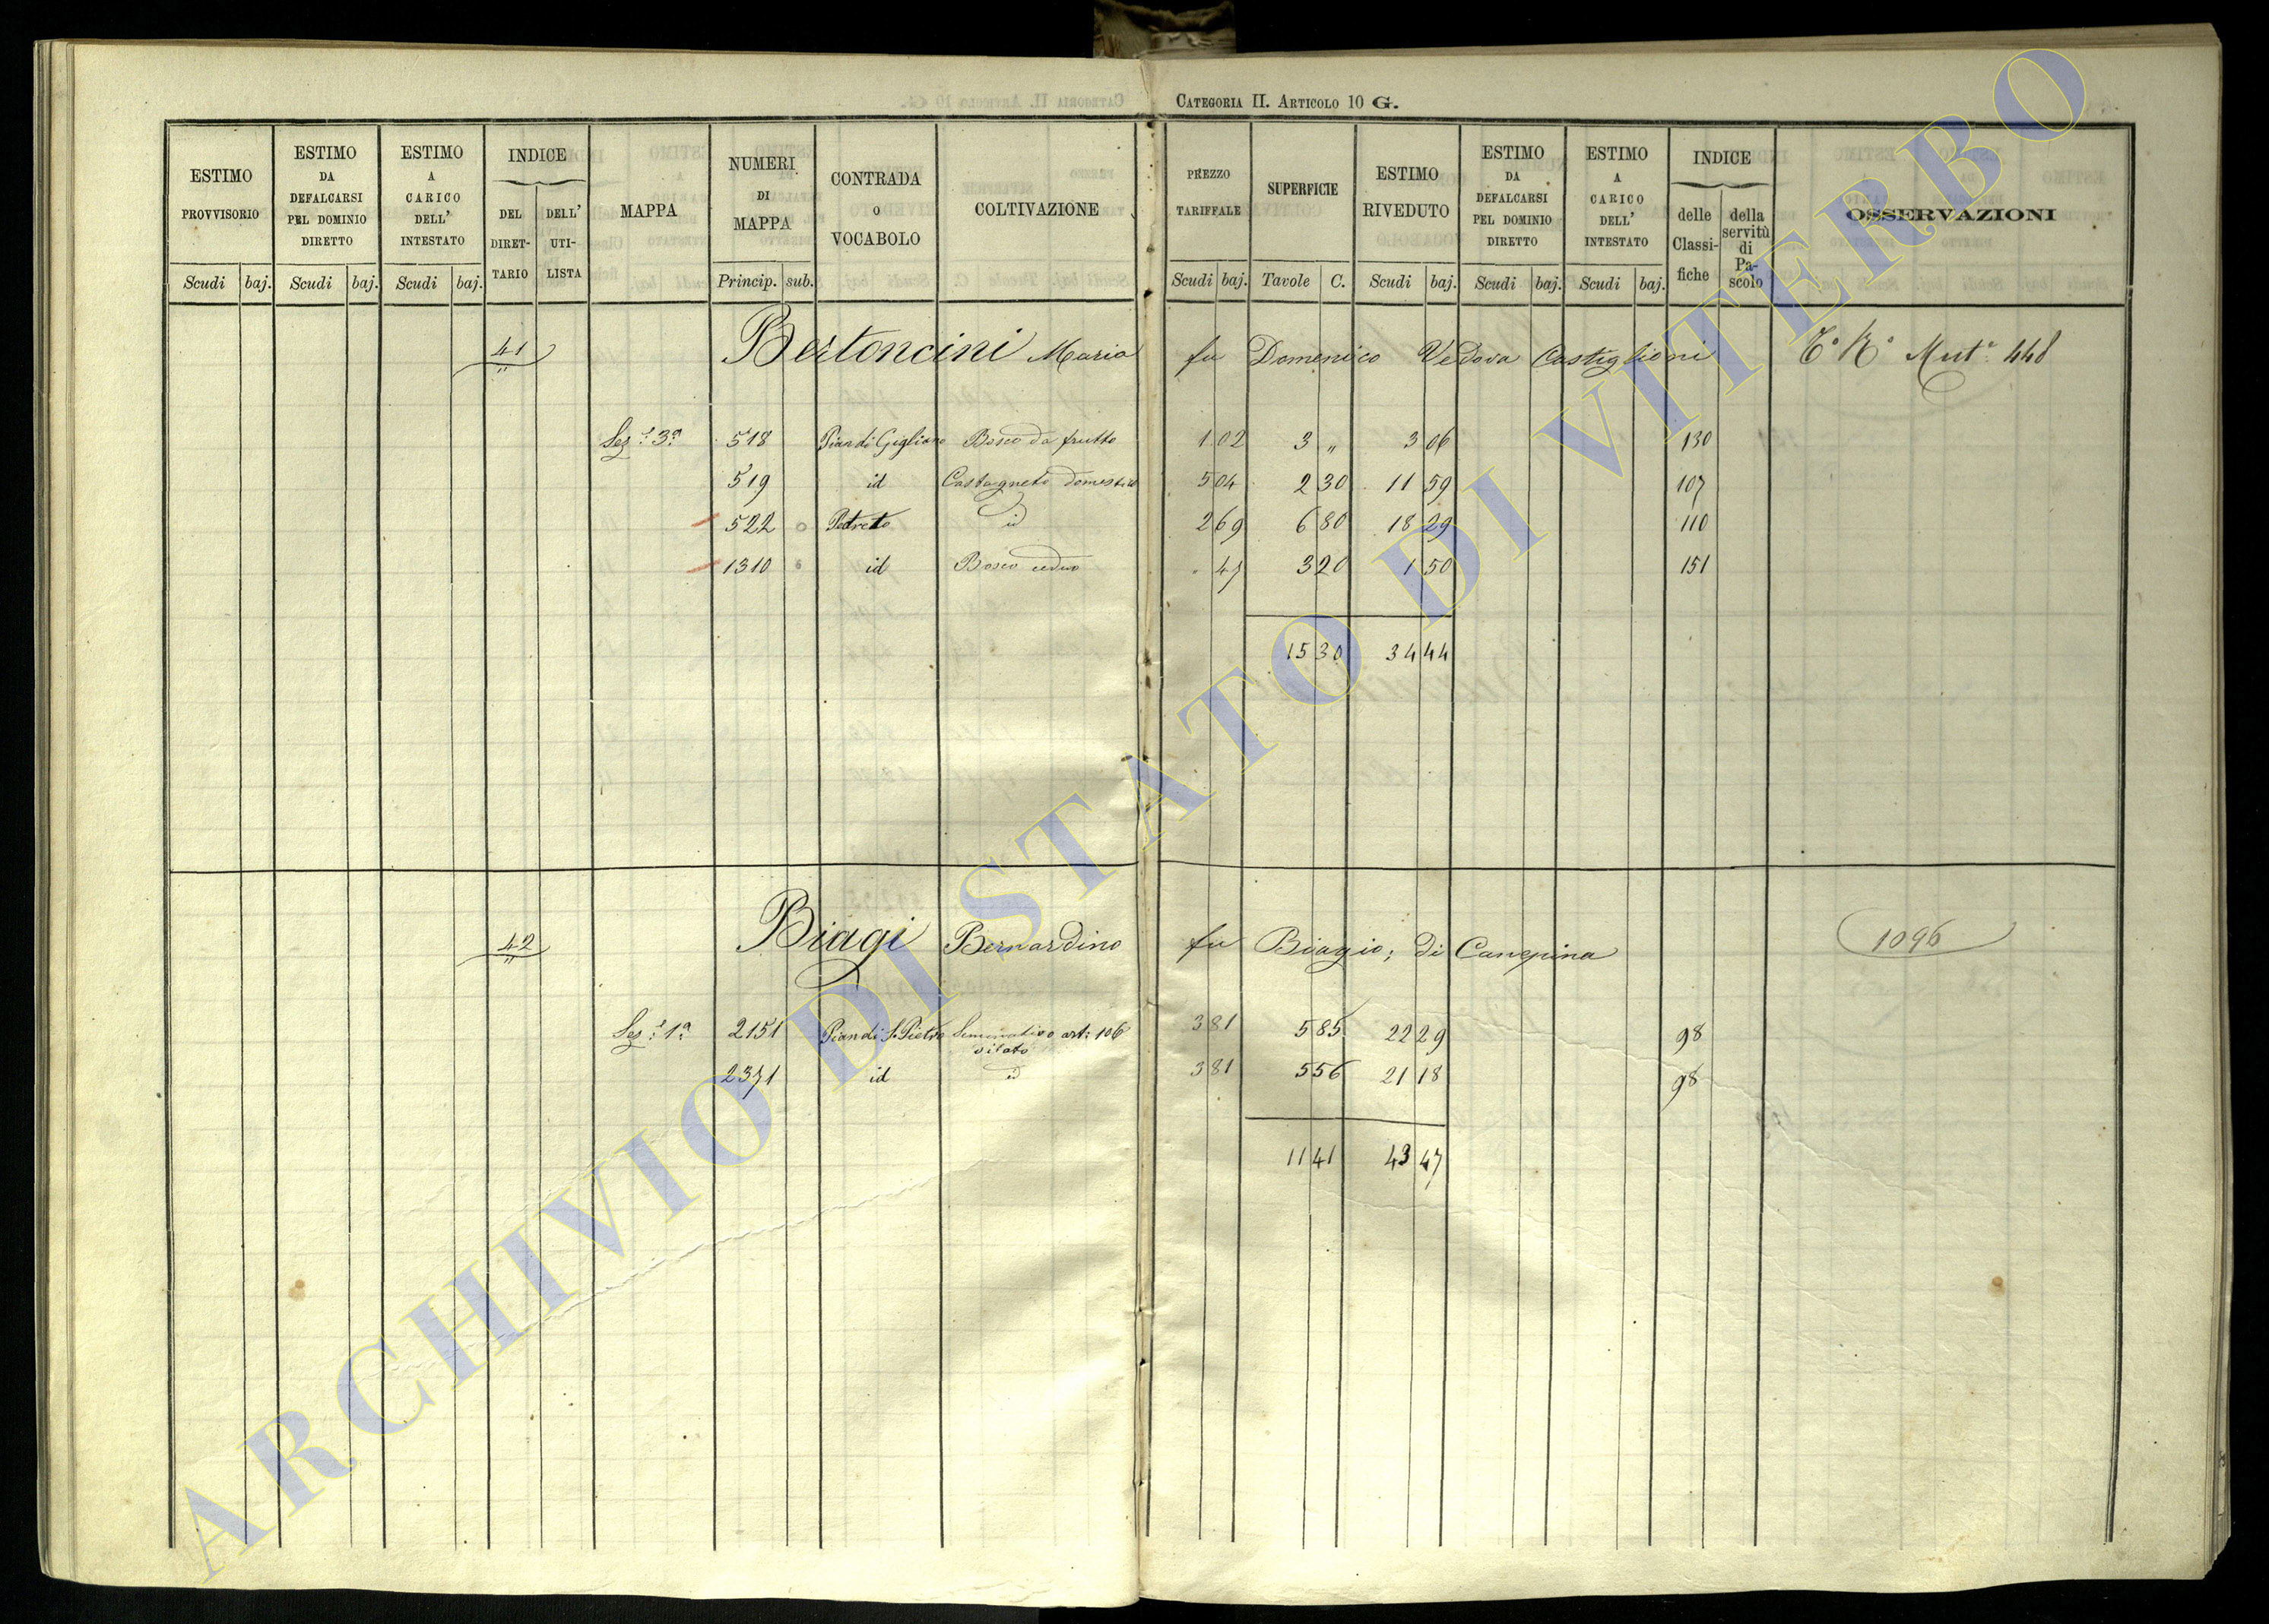 CATEGORIA II. ARTICOLO 10 G.
ESTIMO PROVVISORIO Scudi baj.
ESTIMO DA DEFALCARSI PEL DOMINIO DIRETTO Scudi baj.
ESTIMO A CARICO DELL' INTESTATO Scudi baj.
INDICE DEL DIRET-TARIO DELL' UTI-LISTA
MAPPA
NUMERI DI MAPPA Princip. sub.
CONTRADA O VOCABOLO
COLTIVAZIONE
PREZZO TARIFFALE Scudi baj.
SUPERFICIE Tavole C.
ESTIMO RIVEDUTO Scudi baj.
ESTIMO DA DEFALCARSI PEL DOMINIO DIRETTO Scudi baj.
ESTIMO A CARICO DELL' INTESTATO Scudi baj.
INDICE delle Classi-fiche della servitù di Pa-scolo
OSSERVAZIONI
41 Bertoncini Maria fu Domenico Vedova Castiglioni Mut. 448
Sez. 3a 518 Pian di Gigliano Bosco da frutto 1 02 3 „ 3 06 130
519 id Castagneto domestico 5 04 2 30 11 59 107
522 o Petreto id 2 69 6 80 18 29 110
1310 id Bosco ceduo 47 3 20 1 50 151
15 30 34 44
42 Biagi Bernardino fu Biagio; di Canepina 1096
Sez. 1a 2151 Pian di S. Pietro Seminativo art: 106 3 81 5 85 22 29 98
vitato
2371 id id 3 81 5 56 21 18 98
11 41 43 47
ARCHIVIO DI STATO DI VITERBO